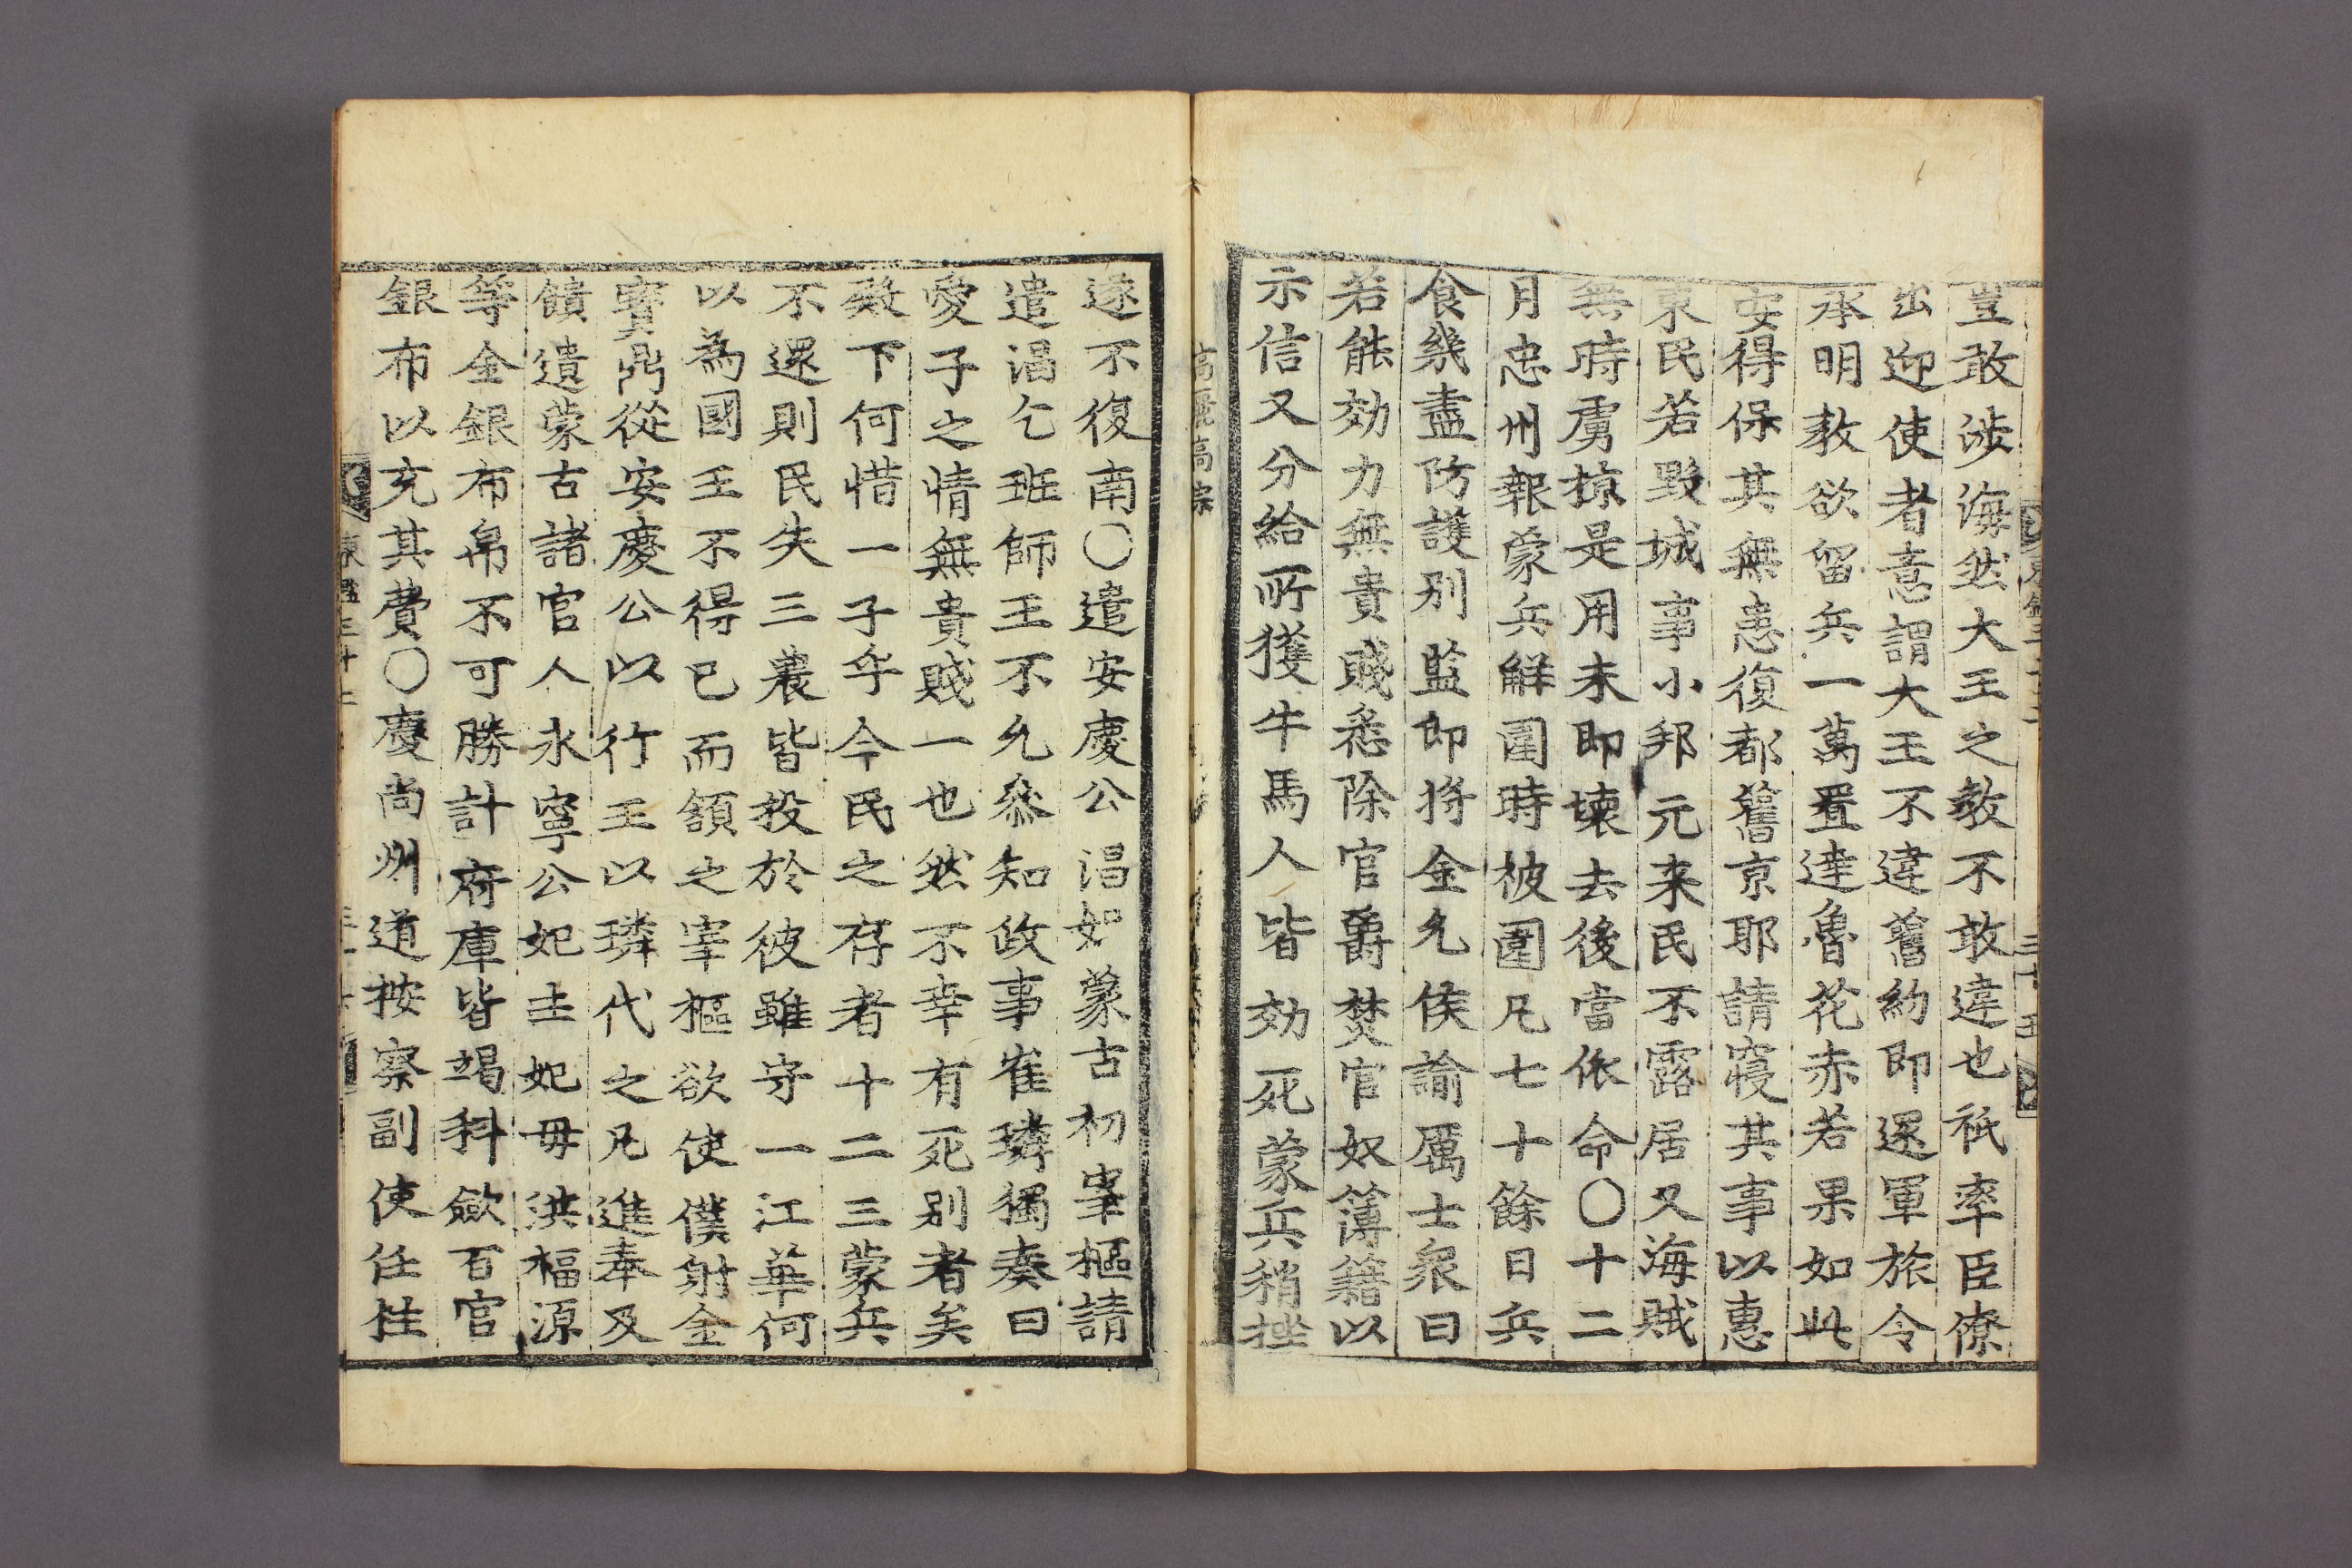 豈敢涉海然大王之教不敢違也祇率臣僚
出迎使者意謂大王不違舊約即還軍旅令
承明教欲留兵一萬置達魯花赤若果如此
安得保其無恙復都舊京耶請寢其事以惠
東民若毀城事小邦元来民不露居又海賊
無時虜掠是用未即壊去後當依命〇十二
月忠州報蒙兵解圍時被圍凡七十餘日兵
食幾盡防護别監即将金允侯諭厲士衆曰
若能効力無貴賤悉除官爵焚官奴簿籍以
示信又分給所獲牛馬人皆効死蒙兵稍挫
高麗高宗
遂不復南〇遣安慶公淐如蒙古初宰樞請
遣淐乞班師王不允叅知政事崔璘獨奏曰
愛子之情無貴賤一也然不幸有死别者矣
殿下何惜一子乎今民之存者十二三蒙兵
不還則民失三農皆投於彼雖守一江華何
以為國王不得已而頷之宰樞欲使僕射金
寶鼎從安慶公以行王以璘代之凡進奉及
饋遺蒙古諸官人永寧公妃主妃母洪福源
等金銀布帛不可勝計府庫皆竭科斂百官
銀布以充其費〇慶尚州道按察副使任柱